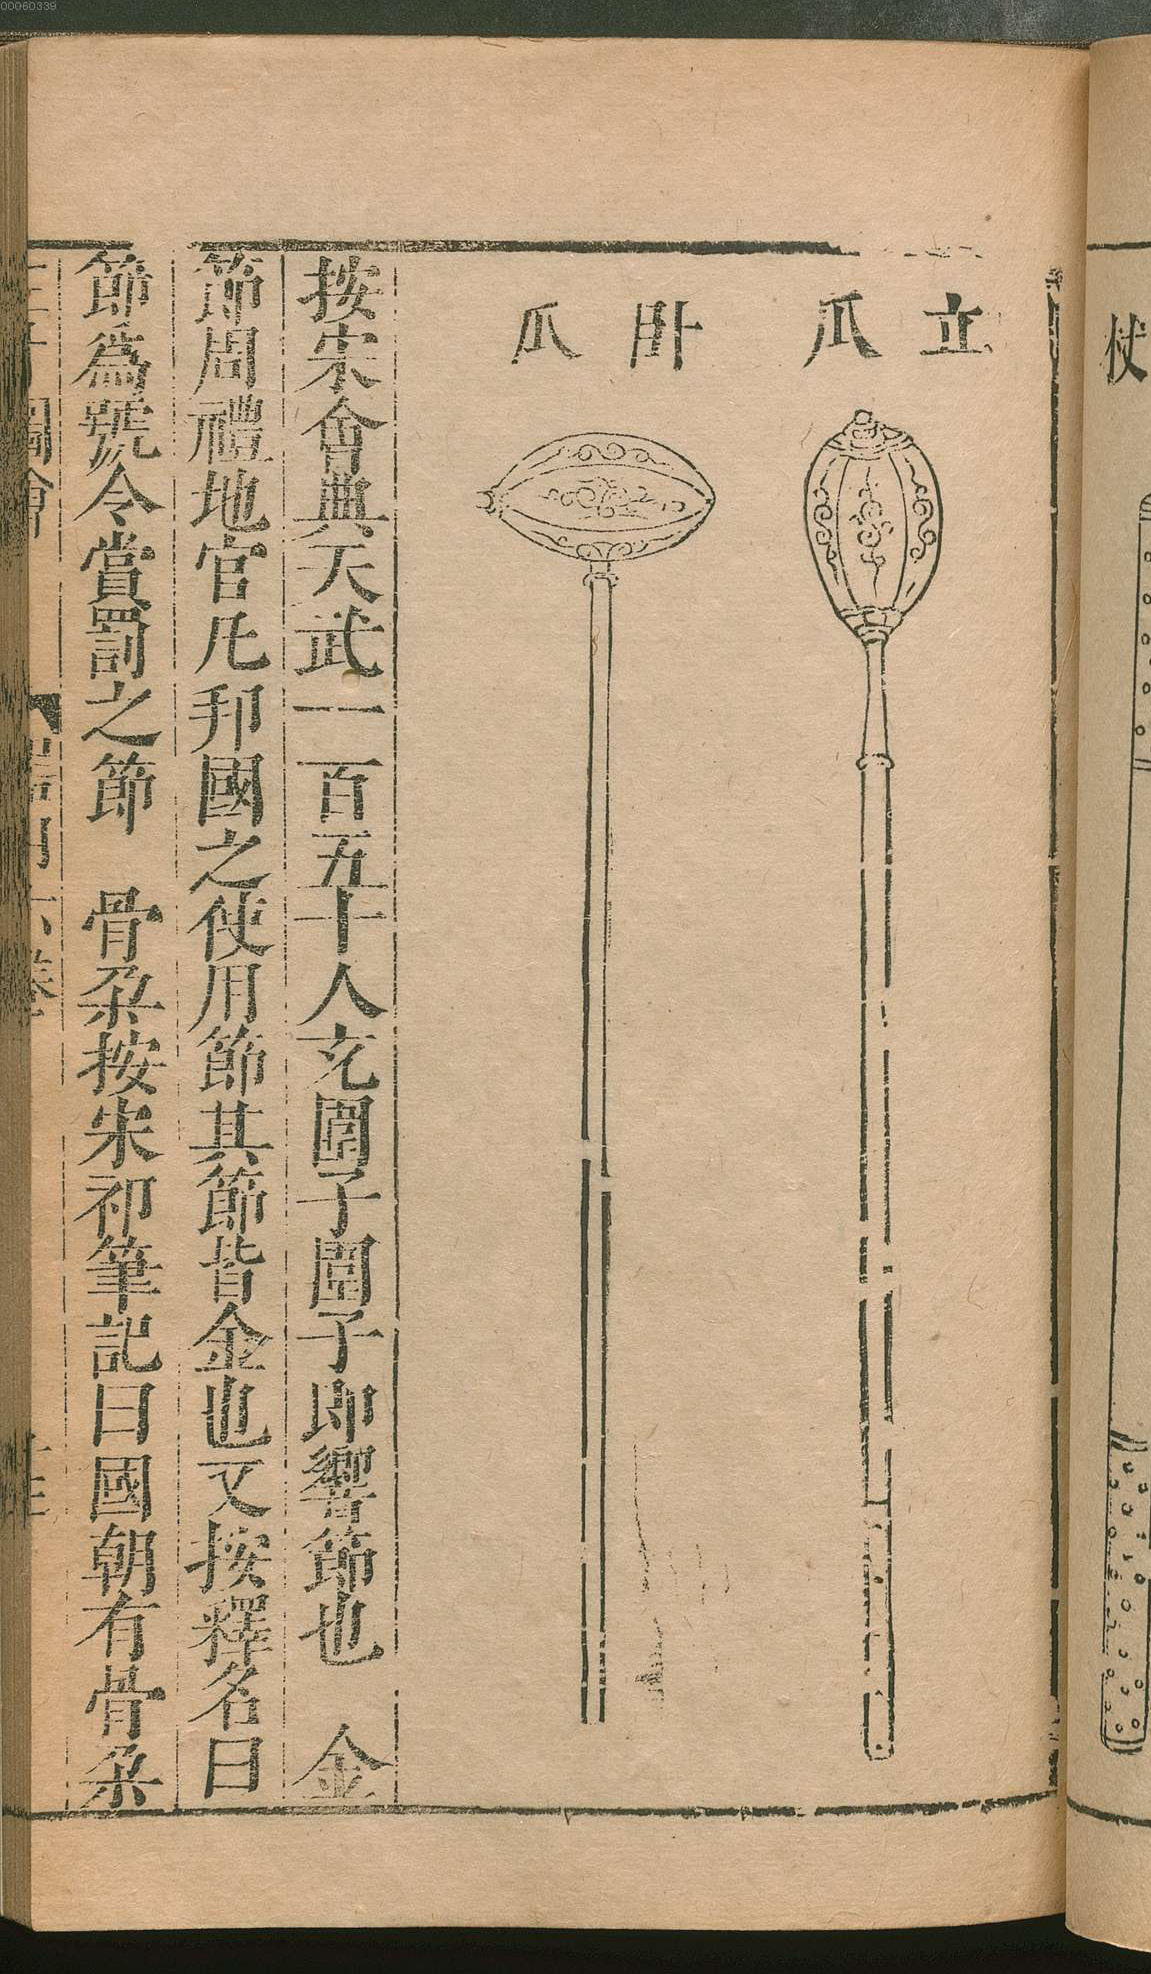 00060339
杖
立瓜
卧瓜
按宋會典天武一百五十人充圍子圍子即響節也　金
節周禮地官凡邦國之使用節其節皆金也又按釋名曰
節爲號令賞罰之節　骨朶按宋祁筆記曰國朝有骨朶
三才圖會
器用六卷